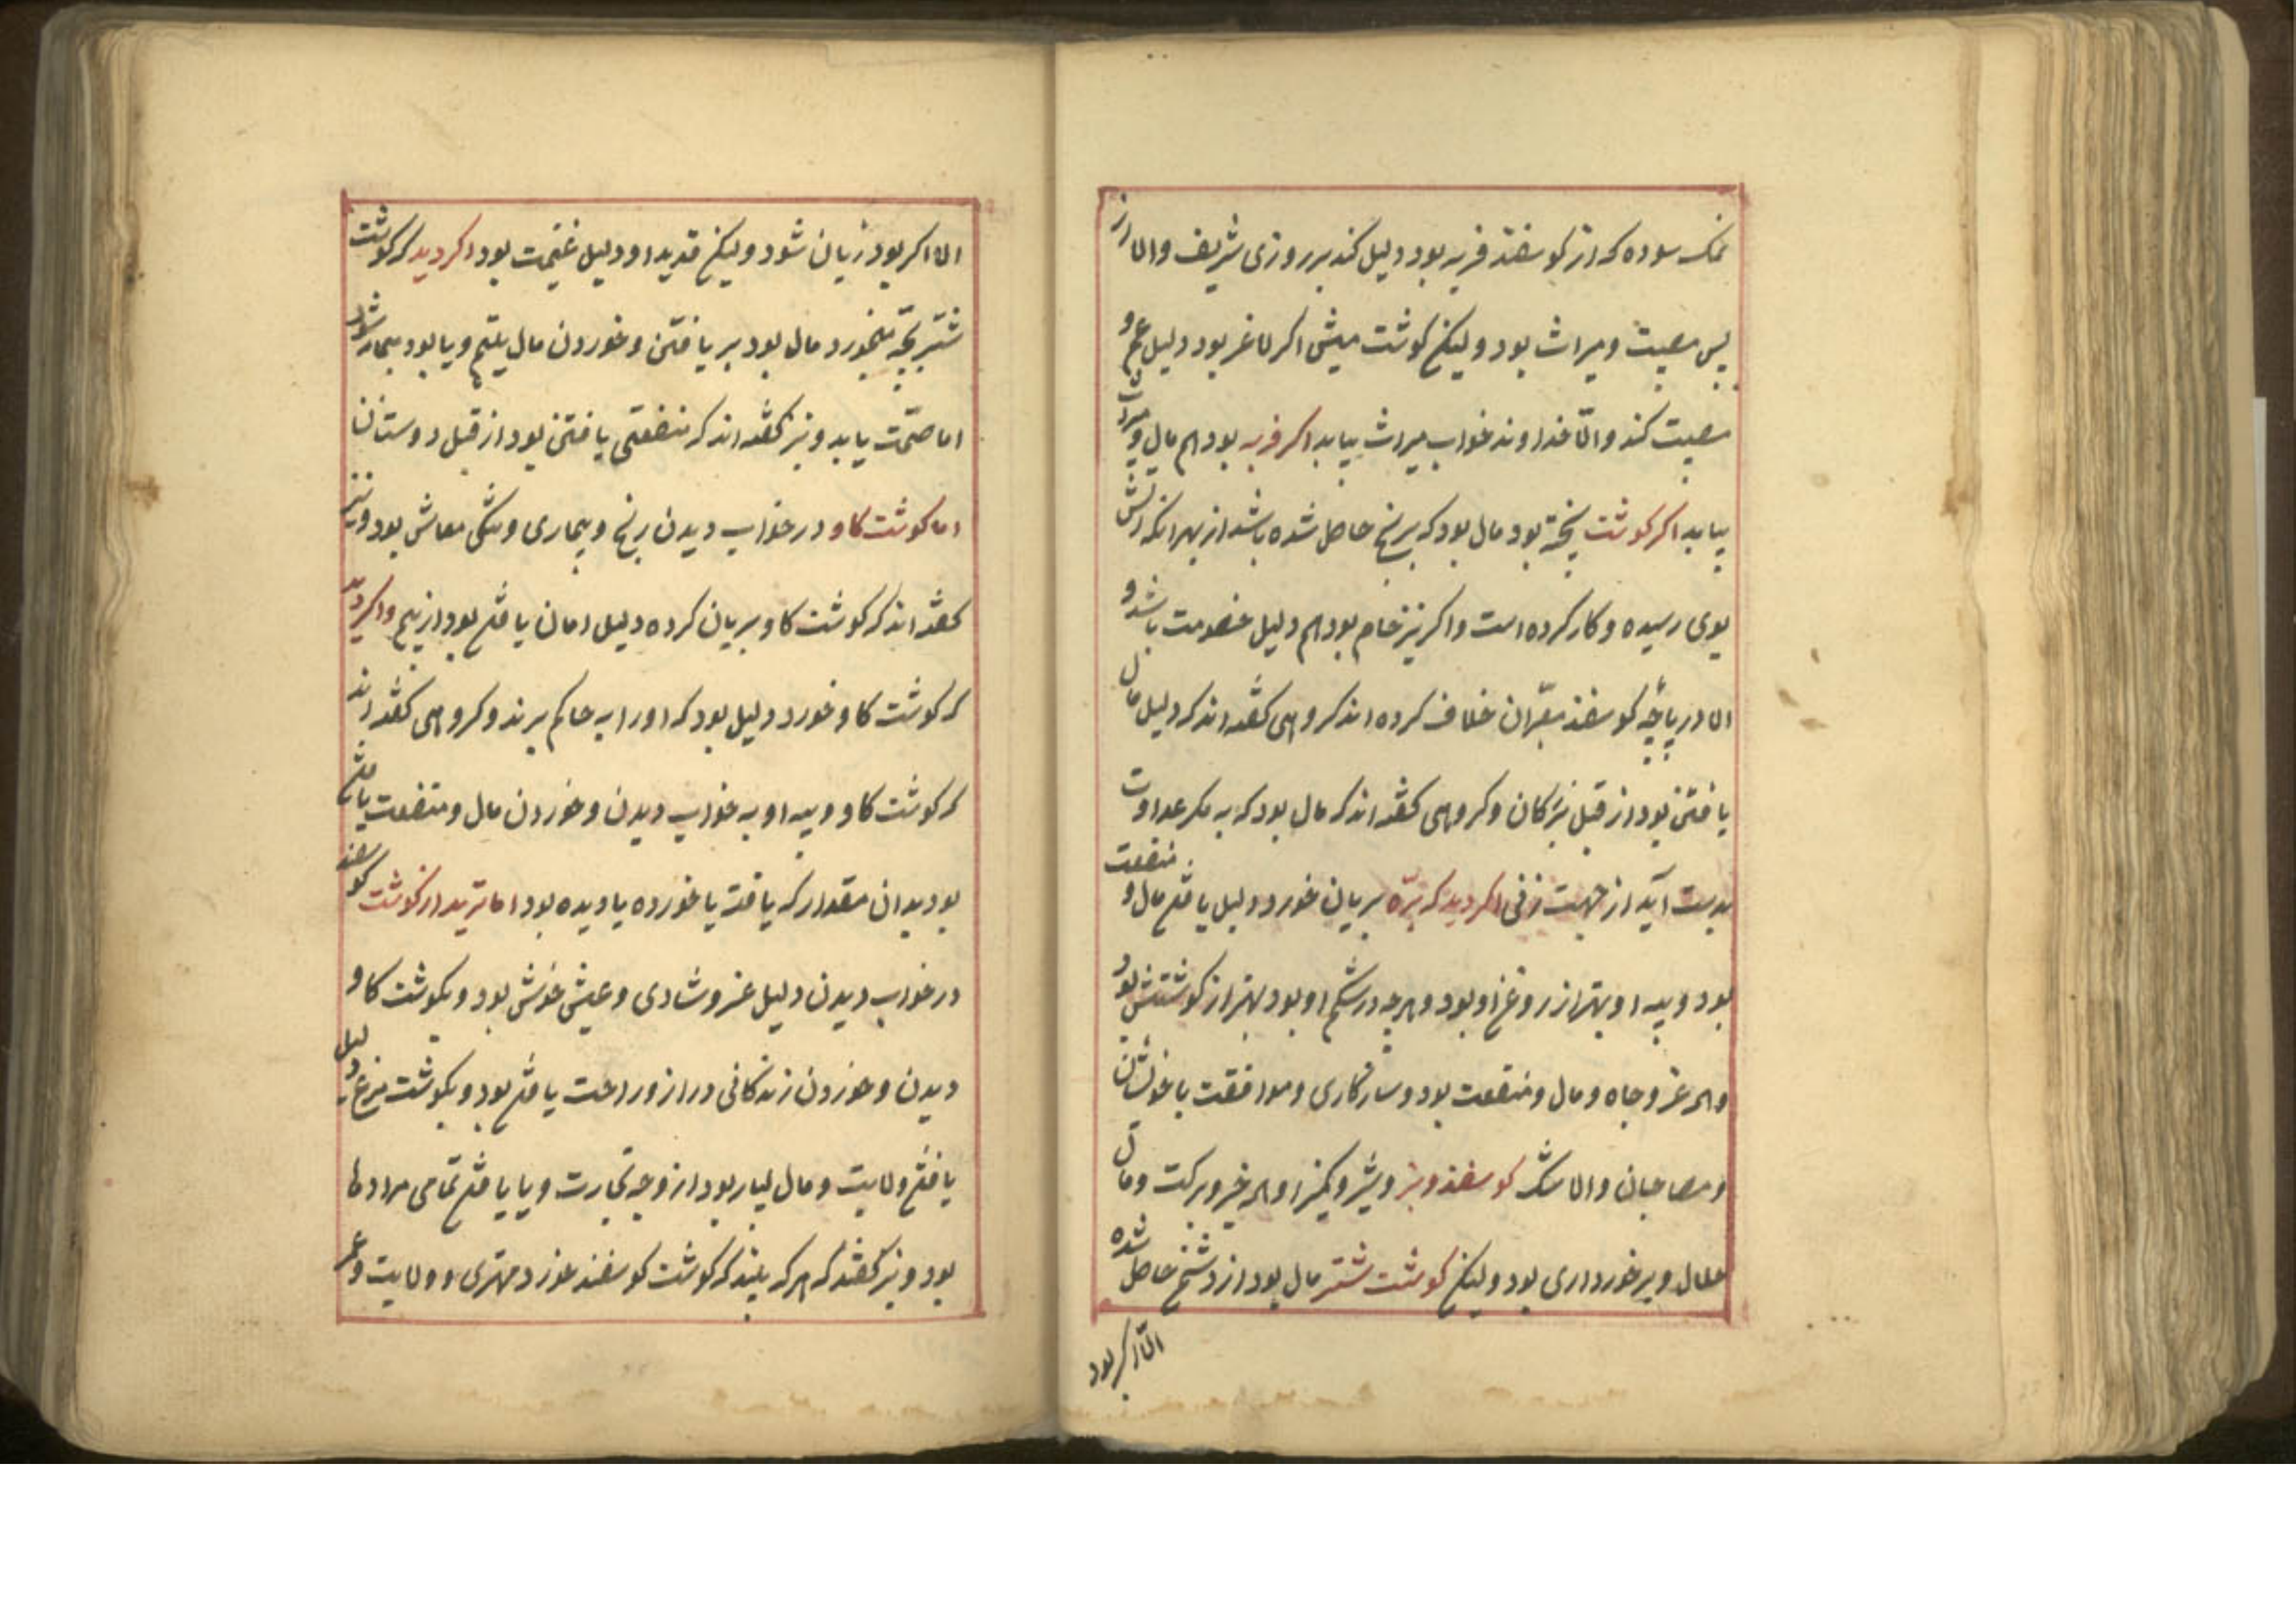 نمک سوده که از کوسفند فربه بود دلیل کند بر روزی شریف والا از
پس مصیبت و میراث بود ولیکن کوشت میش اکر لاغر بود دلیل غم و
مصیبت کند والّا خداوند خواب میراث بیابد اکر فربه بود هم مال و میراث
بیابد اکر کوشت پخته بود مال بود که برنج حاصل شده باشد از بهر آنکه آتش
بوی رسیده و کار کرده است و اکر نیز خام بود هم دلیل خصومت باشد و
اما در پاچهٔ کوسفند معبّران خلاف کرده اند کروهی کفته اند که دلیل مال
یافتن بود از قبل بزرکان و کروهی کفته اند که مال بود که به مکر عداوت
بدست آید از جهت زنی اکر دید که برّه بریان خورد دلیل یافتن مال و منفعت
بود و پیه او بهتر از روغن او بود و هرچه در شکم او بود بهتر از کوشتش بود
و هم عز و جاه و مال و منفعت بود و سازکاری و موافقت با خویشان
و مصاحبان والا شک کوسفند و بز و شیر و پنیر او همه خیر و برکت و مال
حلال و برخورداری بود ولیکن کوشت شتر مال بود از دشمن حاصل شده
الّا اکر بود
الا اکر بود زیان شود ولیکن قدید او دلیل غنیمت بود اکر دید که کوشت
شتر پخته میخورد مال بود بر یافتن و خوردن مال یتیم و یا بود بیمار شود
اما صحّت یابد و نیز کفته اند که منفعتی یافتن بود از قبل دوستان
اما کوشت کاو در خواب دیدن رنج و بیماری و تنکی معاش بود و نیز
کفته اند که کوشت کاو بریان کرده دلیل امان یافتن بود از بیم و اکر دید
که کوشت کاو خورد دلیل بود که او را به حاکم برند و کروهی کفته اند
که کوشت کاو و پیه او به خواب دیدن و خوردن مال و منفعت یافتن
بود بدان مقدار که یافته یا خورده یا دیده بود اما ترید از کوشت کوسفند
در خواب دیدن دلیل عز و شادی و عیش خوش بود و بکوشت کاو
دیدن و خوردن زندکانی دراز و راحت یافتن بود و بکوشت مرغ دلیل
یافتن ولایت و مال بسیار بود از وجه تجارت و یا یافتن تمامی مرادها
بود و نیز کفته که هر که بیند که کوشت کوسفند خورد مهتری و ولایت و عمر